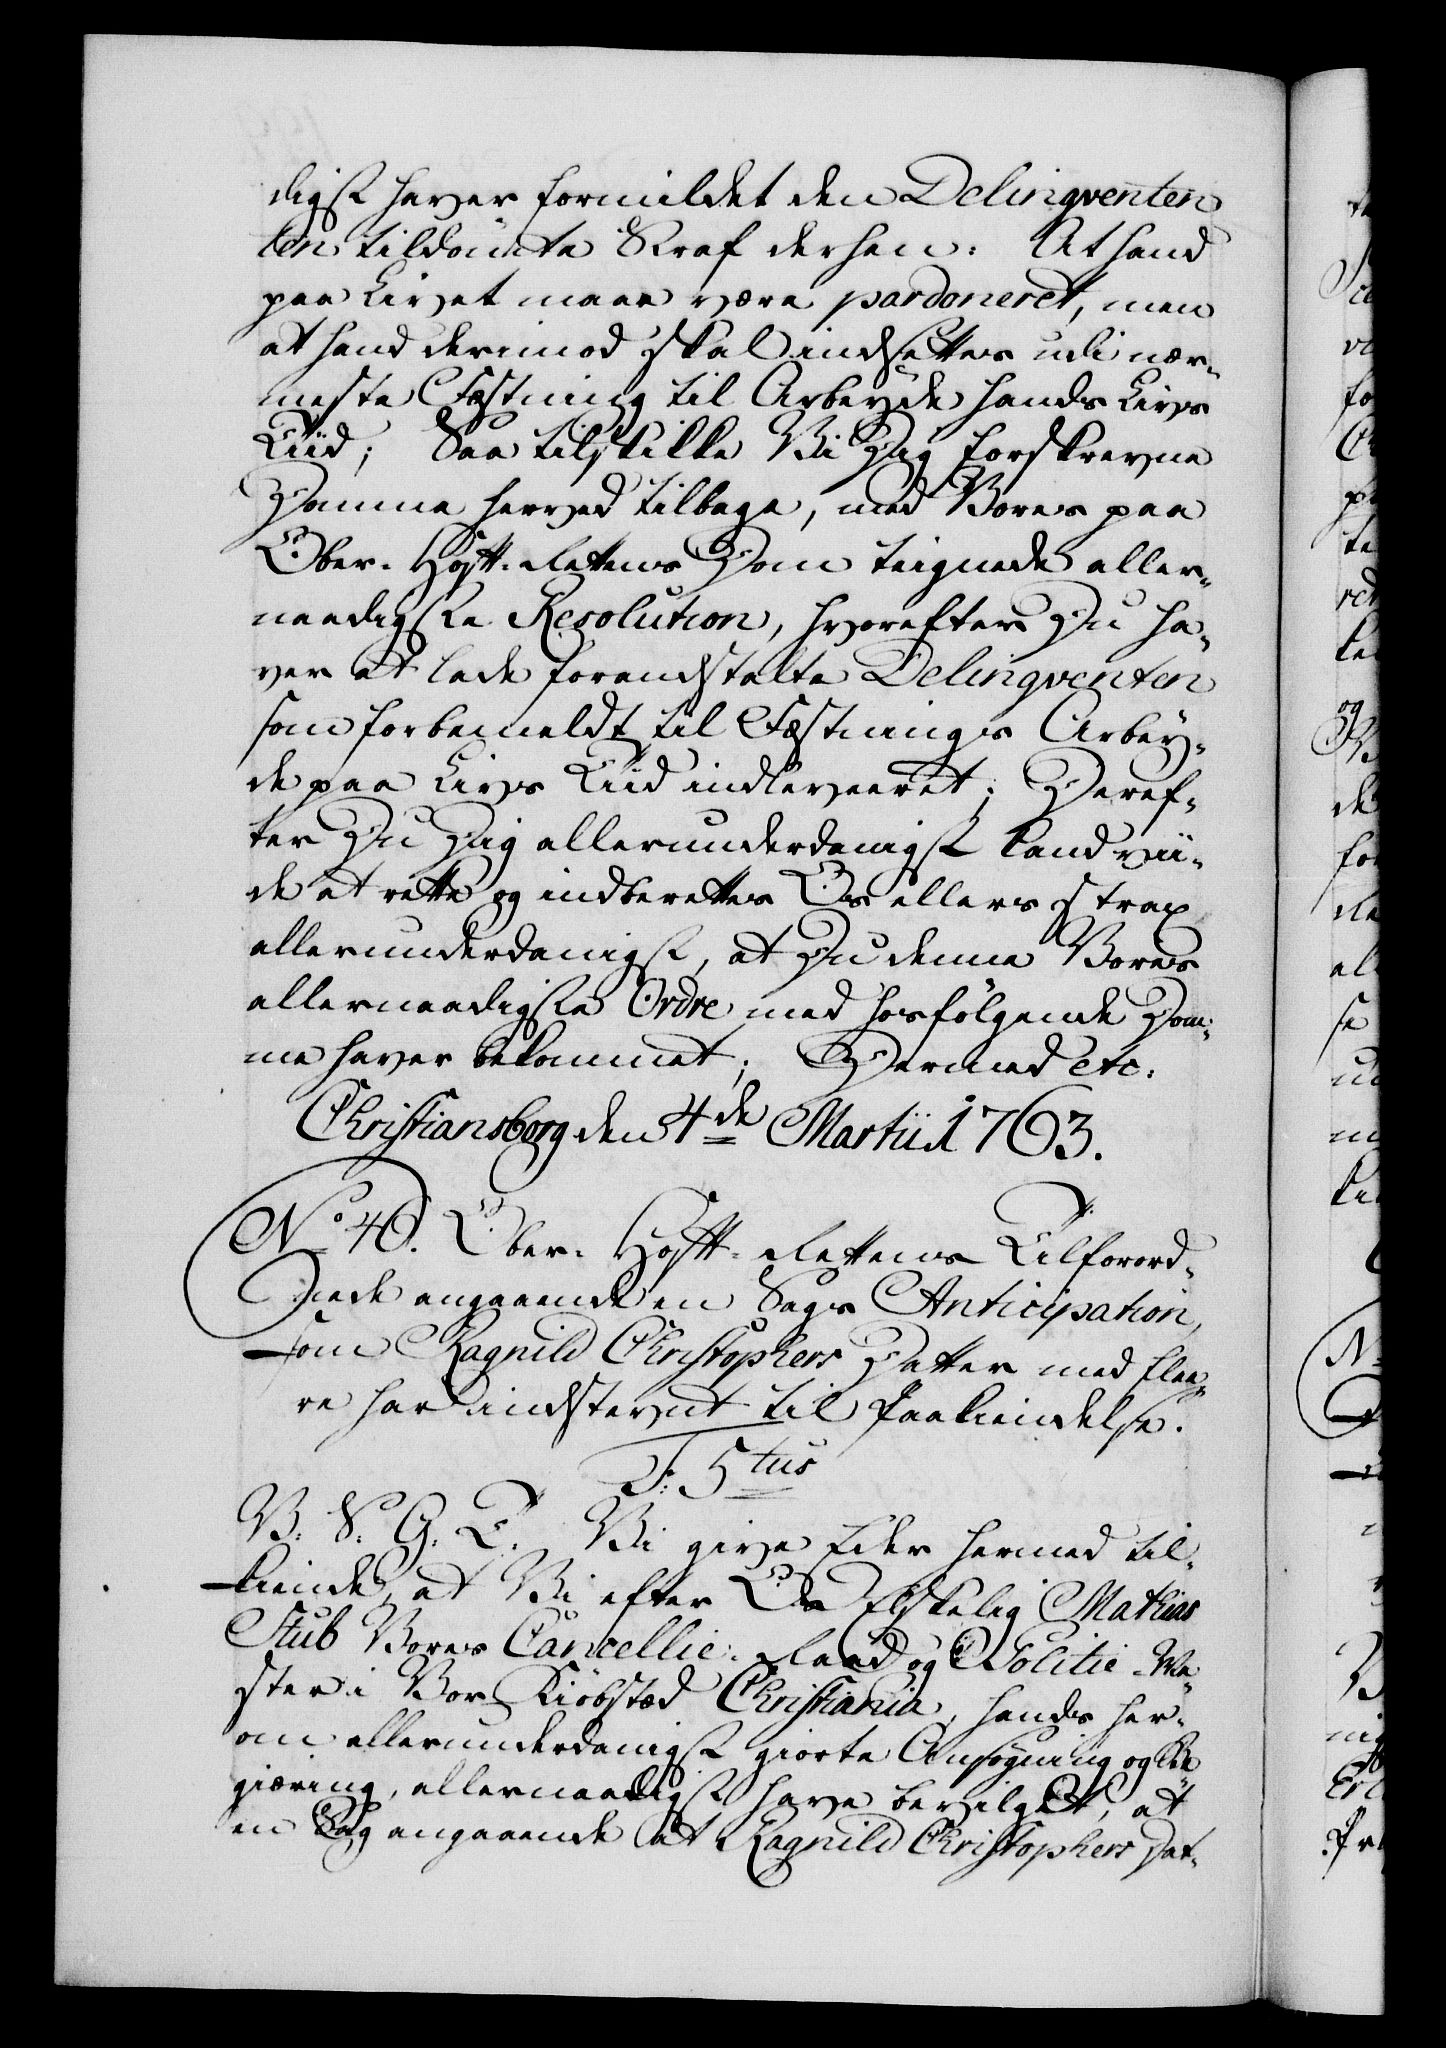 digst haver formildet den Delinqventen
len tildömte Straf derhen: At hand
paa Livet maae være pardoneret, men
at hand derimod skal indsettes udi nær-
meste Fæstning til Arbeyde hands Livs
Tiid; Saa tilskikke Vi Dig forskrevne
Domme herved tilbage, med Vores paa
Ober-Hoff-Rettens Dom teignede aller-
naadigste Resolution, hvorefter Du ha-
ver at lade foranstalte Delinqventen
som forbemeldt til Fæstnings Arbey-
de paa Livs Tiid indleveeret; Deref-
ter Du Dig allerunderdanigst kand vii-
de at rette og indberette Os ellers strax
allerunderdanigst, at Du denne Vores
allernaadigste Ordre med hosfølgende Dom-
me haver bekommet; Dermed etc:
Christiansborg den 4de Martii 1763.
No 46. Ober-Hoff-Rettens Tilforord-
nede angaaende en Sags Anticipation,
som Ragnild Christophers Datter med flee-
re har indstevnt til Paakiendelse.
F: 5tus
V. S. G. T. Vi give Eder hermed til-
kiende, at Vi efter Os Elskelig Mathias
Stub Vores Cancellie-Raad og Politie-Me-
ster i Vor Kiöbstæd Christiania, hands her-
om allerunderdanigst giorte Ansøgning og Be-
giæring, allernaadigst have bevilget, at
en Sag angaaende at Ragnild Christophers Dat-